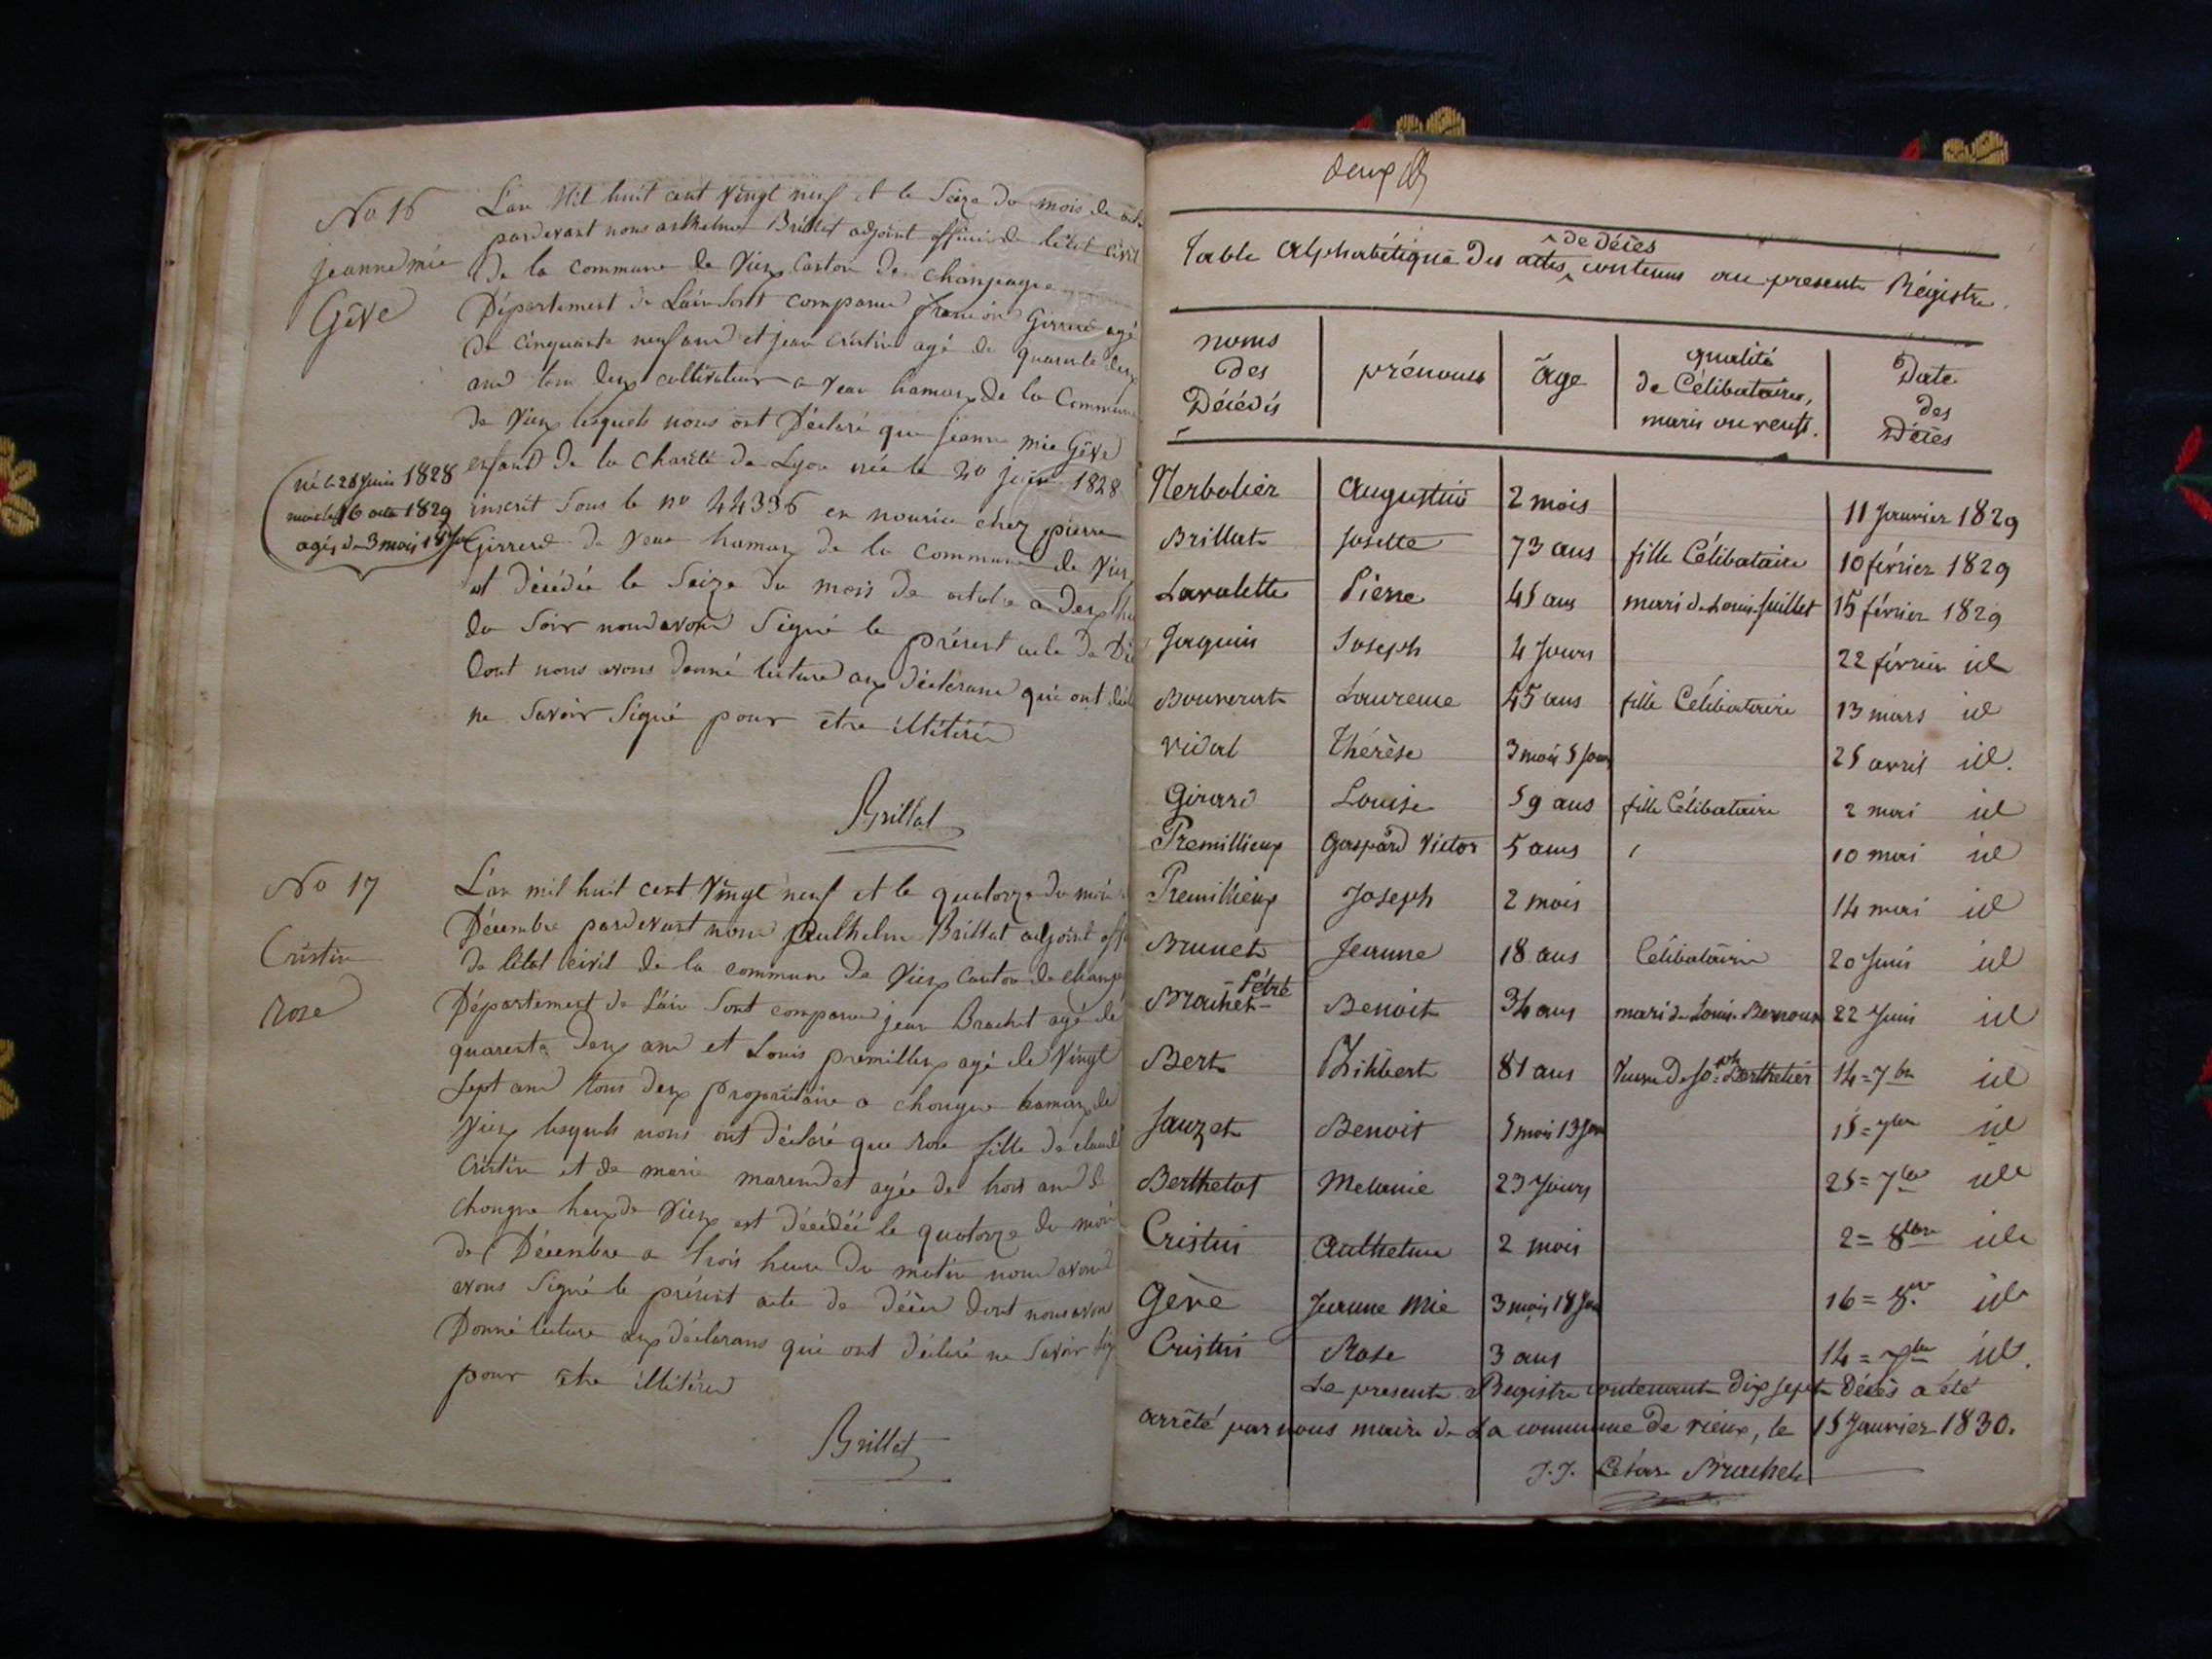 No 16
jeanne mie
Gêve
né le 28 juin 1828
16 1829
agés de 3 mois 18 jo
L'an Mil huit cent vingt neuf et le Seize du mois de
pardevant nous anthelme Brillat adjoint officier de l'état civil
de la Commune de Vieux Canton de Champagne
Département de L'ain Sont comparu agé
de cinquante neuf and et jean Cristin agé de quarente deux
and tous deux cultivateur a hamaux de la Commune
de Vieux lesquels nous ont Déclaré que jeanne mie Gêve
enfand de la Charité de Lyon née le 1828
inscrit Sous le no 44336 en nourice chez pierre
Girrerd de hamaux de la Commune de Vieux
et décédée le Seize du mois de octobre a deux he
du Soir nous avons Signé le présent acte de Dé
Dont nous avons donné lecture aux déclarand qui ont décl
ne Savoir Signé pour être illitérér
Brillat
No 17
Cristin
rose
L'an mil huit cent Vingt neuf et le quatorze du mois
Décembre pardevant nous anthelme Brillat adjoint off
de l'état civil de la commune de Vieux canton de champ
Département de L'ain Sont comparu jean Brachet agé de
quarente deux and et Louis premillieux agé de Vingt
sept and tous deux propriétaire a chongne hamaux de
Vieux lesquels nous ont déclaré que rose fille de claude
Cristin et de marie agée de trois and de
chongne hauxde Vieux est décédéé le quatorze du mois
de Décembre a trois heure du matin nous avons
avons Signé le présent acte de décer dont nous avons
Donné lecture aux déclarans qui ont déclaré ne Savoir Sig
pour être illitérér
Brillat
deux
Table Alphabétique des actes de décès contenus au present Régistre.
noms des Décédés | prénoms | âge | qualité de Célibataires, maris ou veufs. | Date des Décès
Augustin 2 mois 11 Janvier 1829
Brillat Josette 73 ans fille Célibataire 10 février 1829
Lavalette Pierre 45 ans mari de Louise Juillet 15 février 1829
Jaquin Joseph 4 Jours 22 février id
Bouverat Laurence 45 ans fille Célibataire 13 mars id
Vidal Thérèse 3 mois 5 Jours 25 avril id.
Girard Louise 59 ans fille Célibataire 2 mai id
Premillieux Gaspard Victor 5 ans 10 mai id
Premillieux Joseph 2 mois 14 mai id
Brunet Jeanne 18 ans Célibataire 20 Juin id
Brachet- Benoit 34 ans mari de Louise 22 Juin id
Bert Philibert 81 ans 14=7bre id
Jauzet Benoit 5 mois 13 Jours 15=7bre id
Berthelot Melanie 23 Jours 25=7bre id
Cristin Anthelme 2 mois 2=8bre id
Gève Jeanne Mie 3 mois 18 Jou 16=8bre id
Cristin Rose 3 ans 14= id.
Le present Registre contenant dix sept Décès a été
arrêté par nous maire de La commune de vieux, le 15 Janvier 1830.
J. J. César Brachet